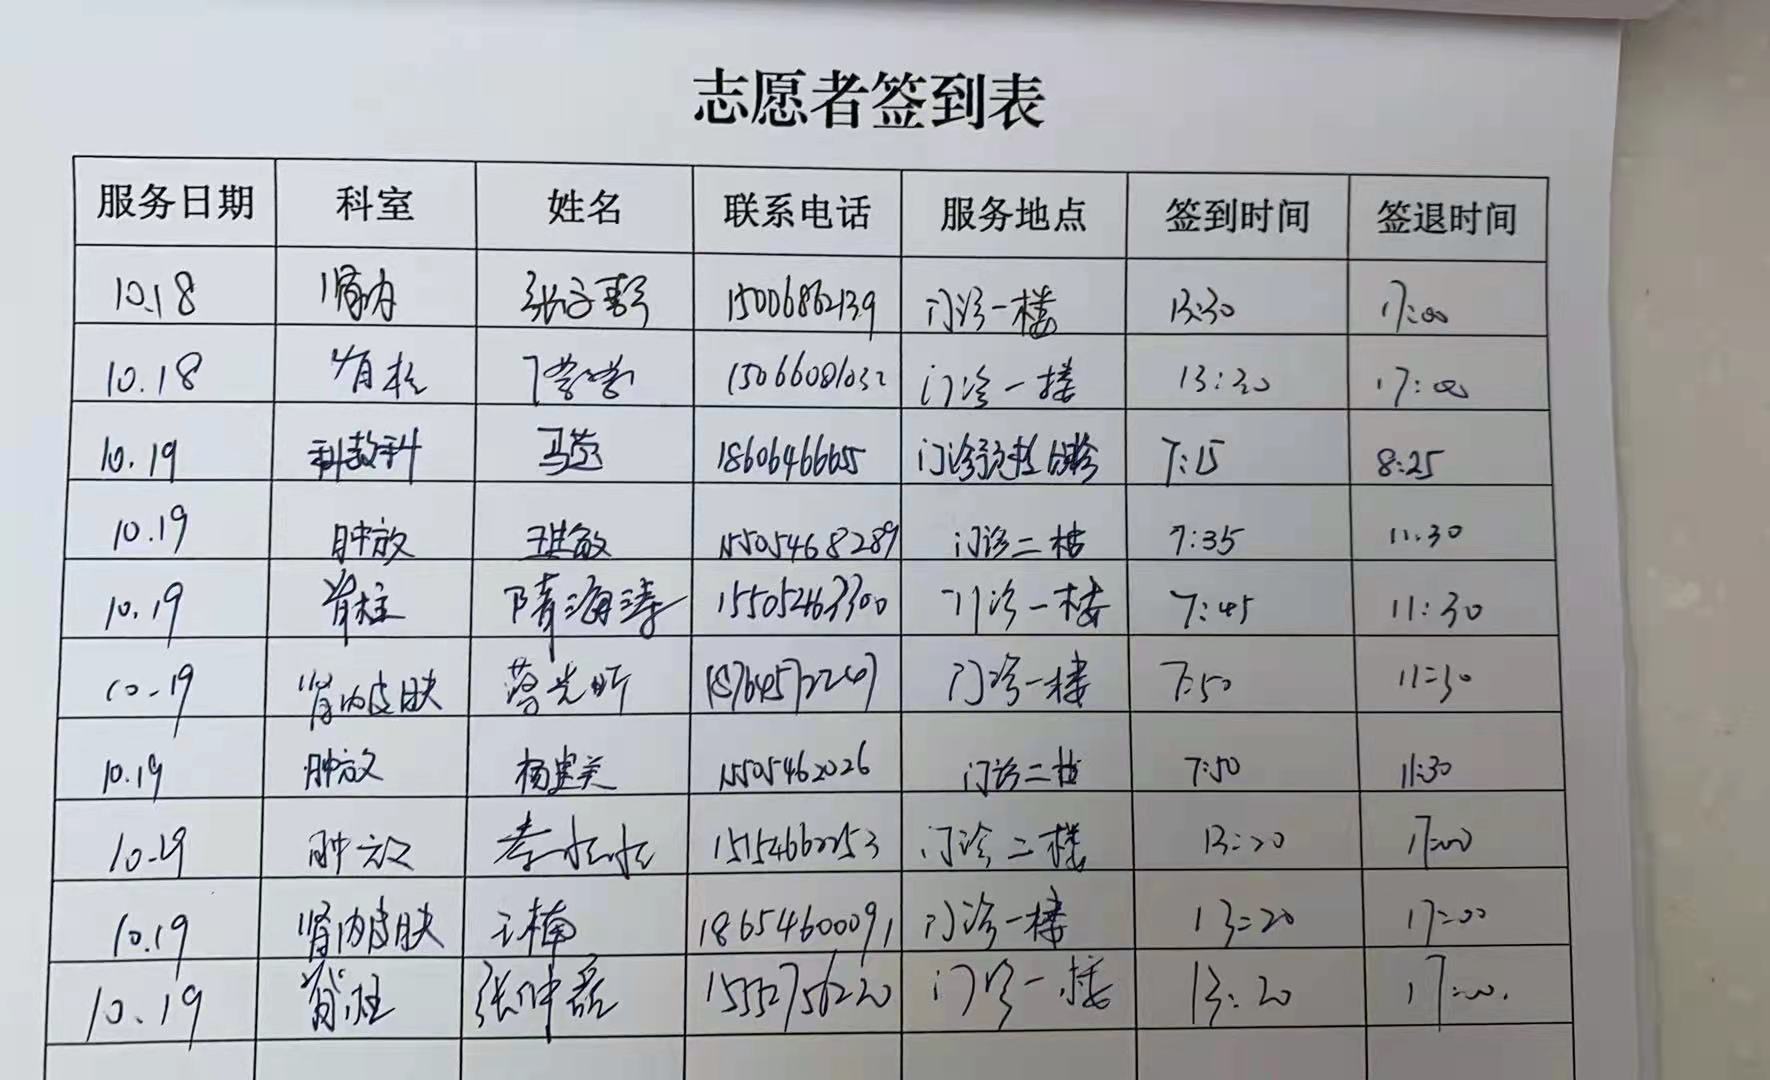 志愿者签到表
服务日期 科室 姓名 联系电话 服务地点 签到时间 签退时间
10.18 肾内 张子 15006862139 门诊一楼 13:30 17:00
10.18 脊柱 丁 15066081032 门诊一楼 13:30 17:00
10.19 科教科 马 18606466655 门诊预检分诊 7:15 8:25
10.19 肿放 王 敏 15505468289 门诊二楼 7:35 11:30
10.19 脊柱 隋海涛 15505463300 门诊一楼 7:45 11:30
10.19 肾内皮肤 光昕 18764572247 门诊一楼 7:50 11:30
10.19 肿放 杨建美 15505462026 门诊二楼 7:50 11:30
10.19 肿放 李 门诊二楼 13:20 17:00
10.19 肾内皮肤 王楠 18654600091 门诊一楼 13:20 17:00
10.19 脊柱 张仲磊 15552756220 门诊一楼 13:20 17:00.